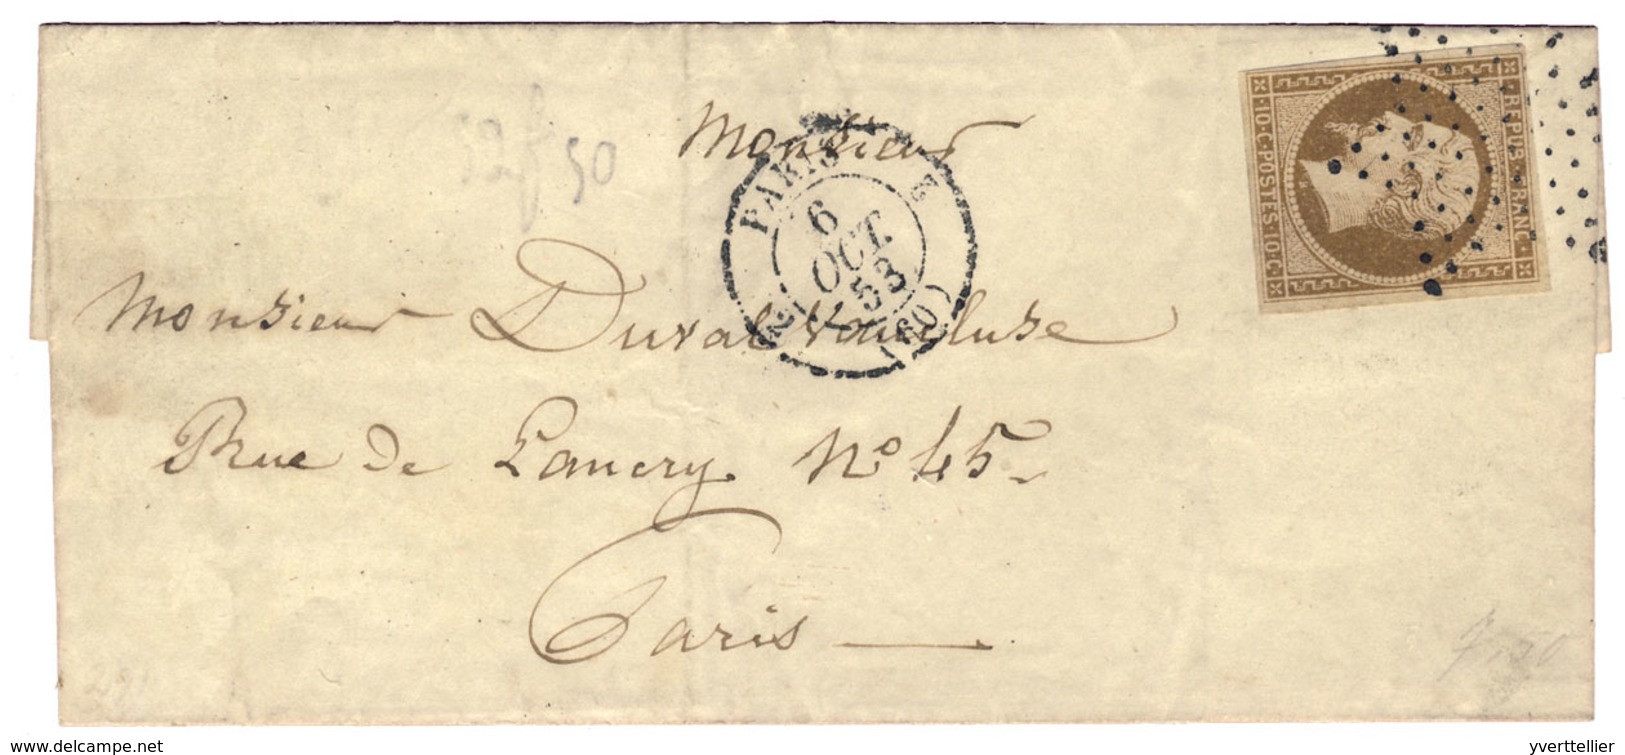 Monsieur
Monsieur Duval Vaucluse
Rue de Lancry No 45
Paris
PARIS E
6
OCT.
53
(60)
REPUB. FRANC.
10·C·POSTES·10·C
www.delcampe.net
yverttellier